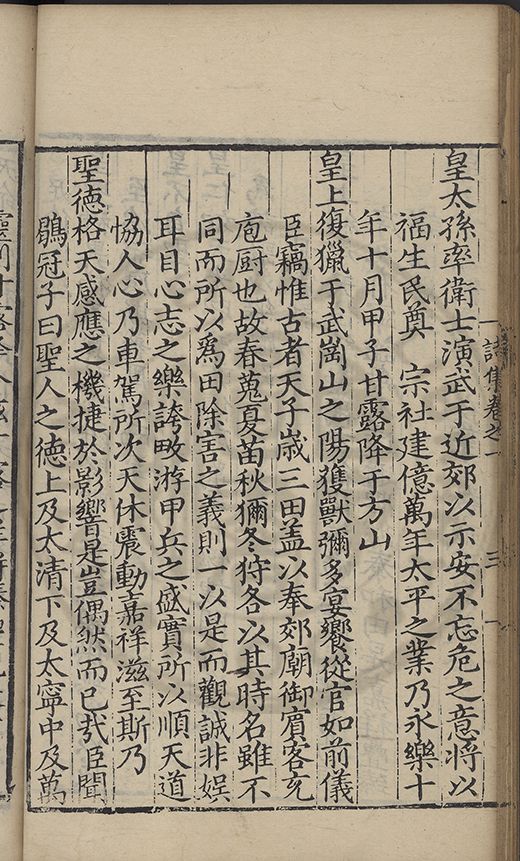 皇太孫率衛士演武于近郊以示安不忘危之意將以
福生民奠　宗社建億萬年太平之業乃永樂十
年十月甲子甘露降于方山
皇上復獵于武崗山之陽獲獸彌多宴饗從官如前儀
臣竊惟古者天子歲三田盖以奉郊廟御賓客充
庖厨也故春蒐夏苗秋獮冬狩各以其時名雖不
同而所以爲田除害之義則一以是而觀誠非娱
耳目心志之樂誇畋游甲兵之盛實所以順天道
恊人心乃車駕所次天休震動嘉祥滋至斯乃
聖德格天感應之機捷於影響是豈偶然而已㢤臣聞
鶡冠子曰聖人之德上及太清下及太寧中及萬
詩集卷之一
三